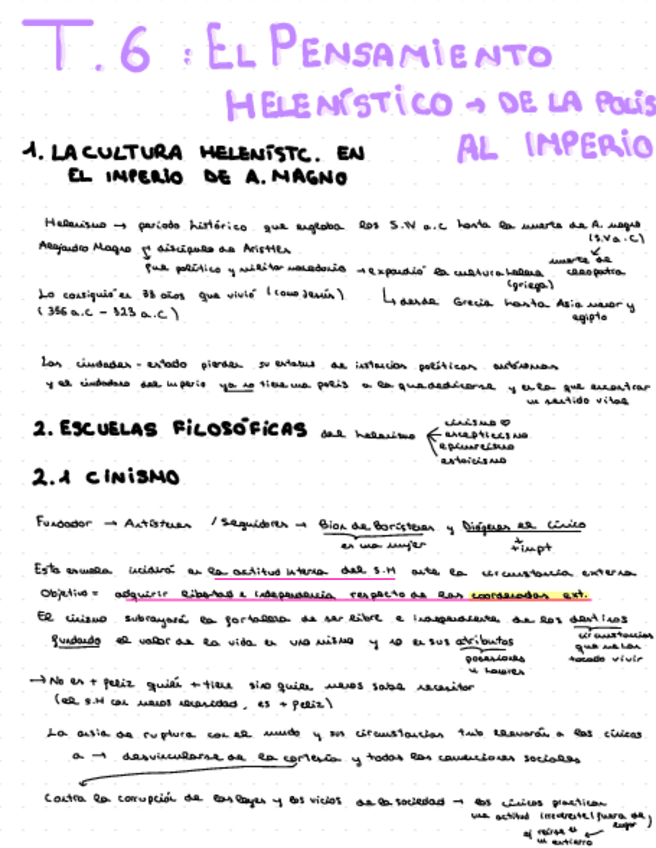 T.6 : EL PENSAMIENTO
HELENÍSTICO → DE LA POLIS
AL IMPERIO
1. LA CULTURA HELENÍSTC. EN
EL IMPERIO DE A. MAGNO
Helenismo → período histórico que engloba los S.IV a.C hasta la muerte de A. Magno
(S.V a.C)
Alejandro Magno discípulo de Aristtls
muerte de
cleopatra
fue político y militar macedonio → expandió la cultura helena
(griega)
Lo consiguió en 33 años que vivió (como Jesús)
↳ desde Grecia hasta Asia menor y
egipto
(356 a.C - 323 a.C)
Las ciudades-estado pierden su estatus de instancias políticas autónomas
y el ciudadano del imperio ya no tiene una polis a la que dedicarse y en la que encontrar
un sentido vital
2. ESCUELAS FILOSÓFICAS del helenismo
cinismo ♡
escepticismo
epicureismo
estoicismo
2.1 CINISMO
Fundador → Antístenes / Seguidores → Bion de Borístenes y Diógenes el cínico
es una mujer
+ impt
Esta escuela incidirá en la actitud interna del S.H ante la circunstancia externa
Objetivo = adquirir libertad e independencia respecto de las coordenadas ext.
El cinismo subrayará la fortaleza de ser libre e independiente de los destinos
circunstancias
que me han
tocado vivir
fundando el valor de la vida en uno mismo y no en sus atributos
posesiones
u honores
→ No es + feliz quién + tiene sino quien menos sabe necesitar
(el S.H con menos necesidad, es + feliz)
La ansia de ruptura con el mundo y sus circunstancias tmb llevarán a los cínicos
a → desvincularse de la cortesía y todas las condiciones sociales
Contra la corrupción de las leyes y los vicios de la sociedad → los cínicos practican
una actitud irreverente (fuera de
lugar)
ej reirse en
un entierro